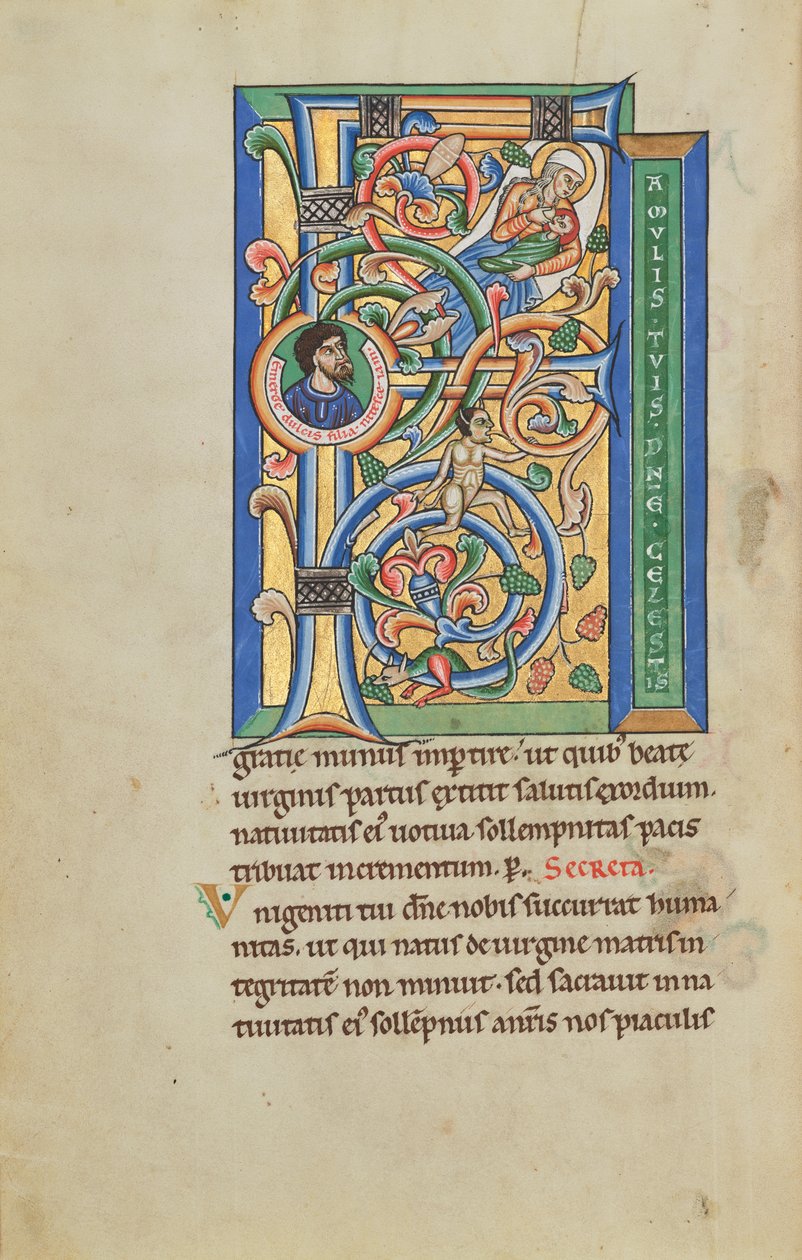 F
AMVLIS · TVIS · DNE · CELESTIS
Emerge · dulcis filia · nitesce iam ·
gratię munus imp̱tire.' ut quib' beatę
uirginis partus extitit salutis exordium.
natiuitatis ei' uotiua sollempnitas pacis
tribuat incrementum. p̱. Secreta.
Vnigeniti tui dn̄e nobis succurrat huma
nitas. ut qui natus de uirgine matris in
tegritatē non minuit. sed sacrauit in na
tiuitatis ei' sollēpniis a nr̄is nos piaculis